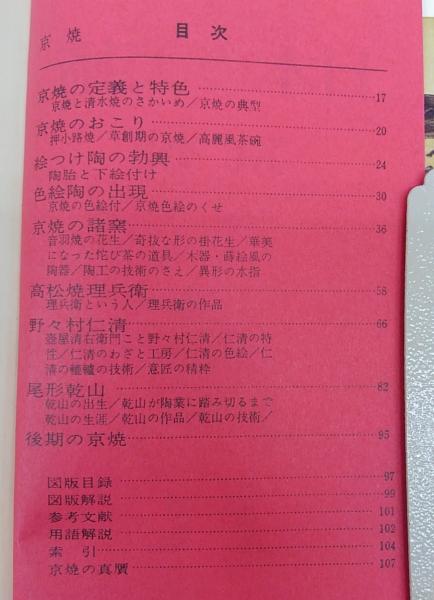 京焼 目次
京焼の定義と特色 17
京焼と清水焼のさかいめ／京焼の典型
京焼のおこり 20
押小路焼／草創期の京焼／高麗風茶碗
絵つけ陶の勃興 24
陶胎と下絵付け
色絵陶の出現 30
京焼の色絵付／京焼色絵のくせ
京焼の諸窯 36
音羽焼の花生／奇抜な形の掛花生／華美
になった侘び茶の道具／木器・蒔絵風の
陶器／陶工の技術のさえ／異形の水指
高松焼理兵衛 58
理兵衛という人／理兵衛の作品
野々村仁清 66
壺屋清右衛門こと野々村仁清／仁清の特
性／仁清のわざと工房／仁清の色絵／仁
清の轆轤の技術／意匠の精粋
尾形乾山 82
乾山の出生／乾山が陶業に踏み切るまで
乾山の生涯／乾山の作品／乾山の技術／
後期の京焼 95
図版目録 97
図版解説 99
参考文献 101
用語解説 102
索引 104
京焼の真贋 107